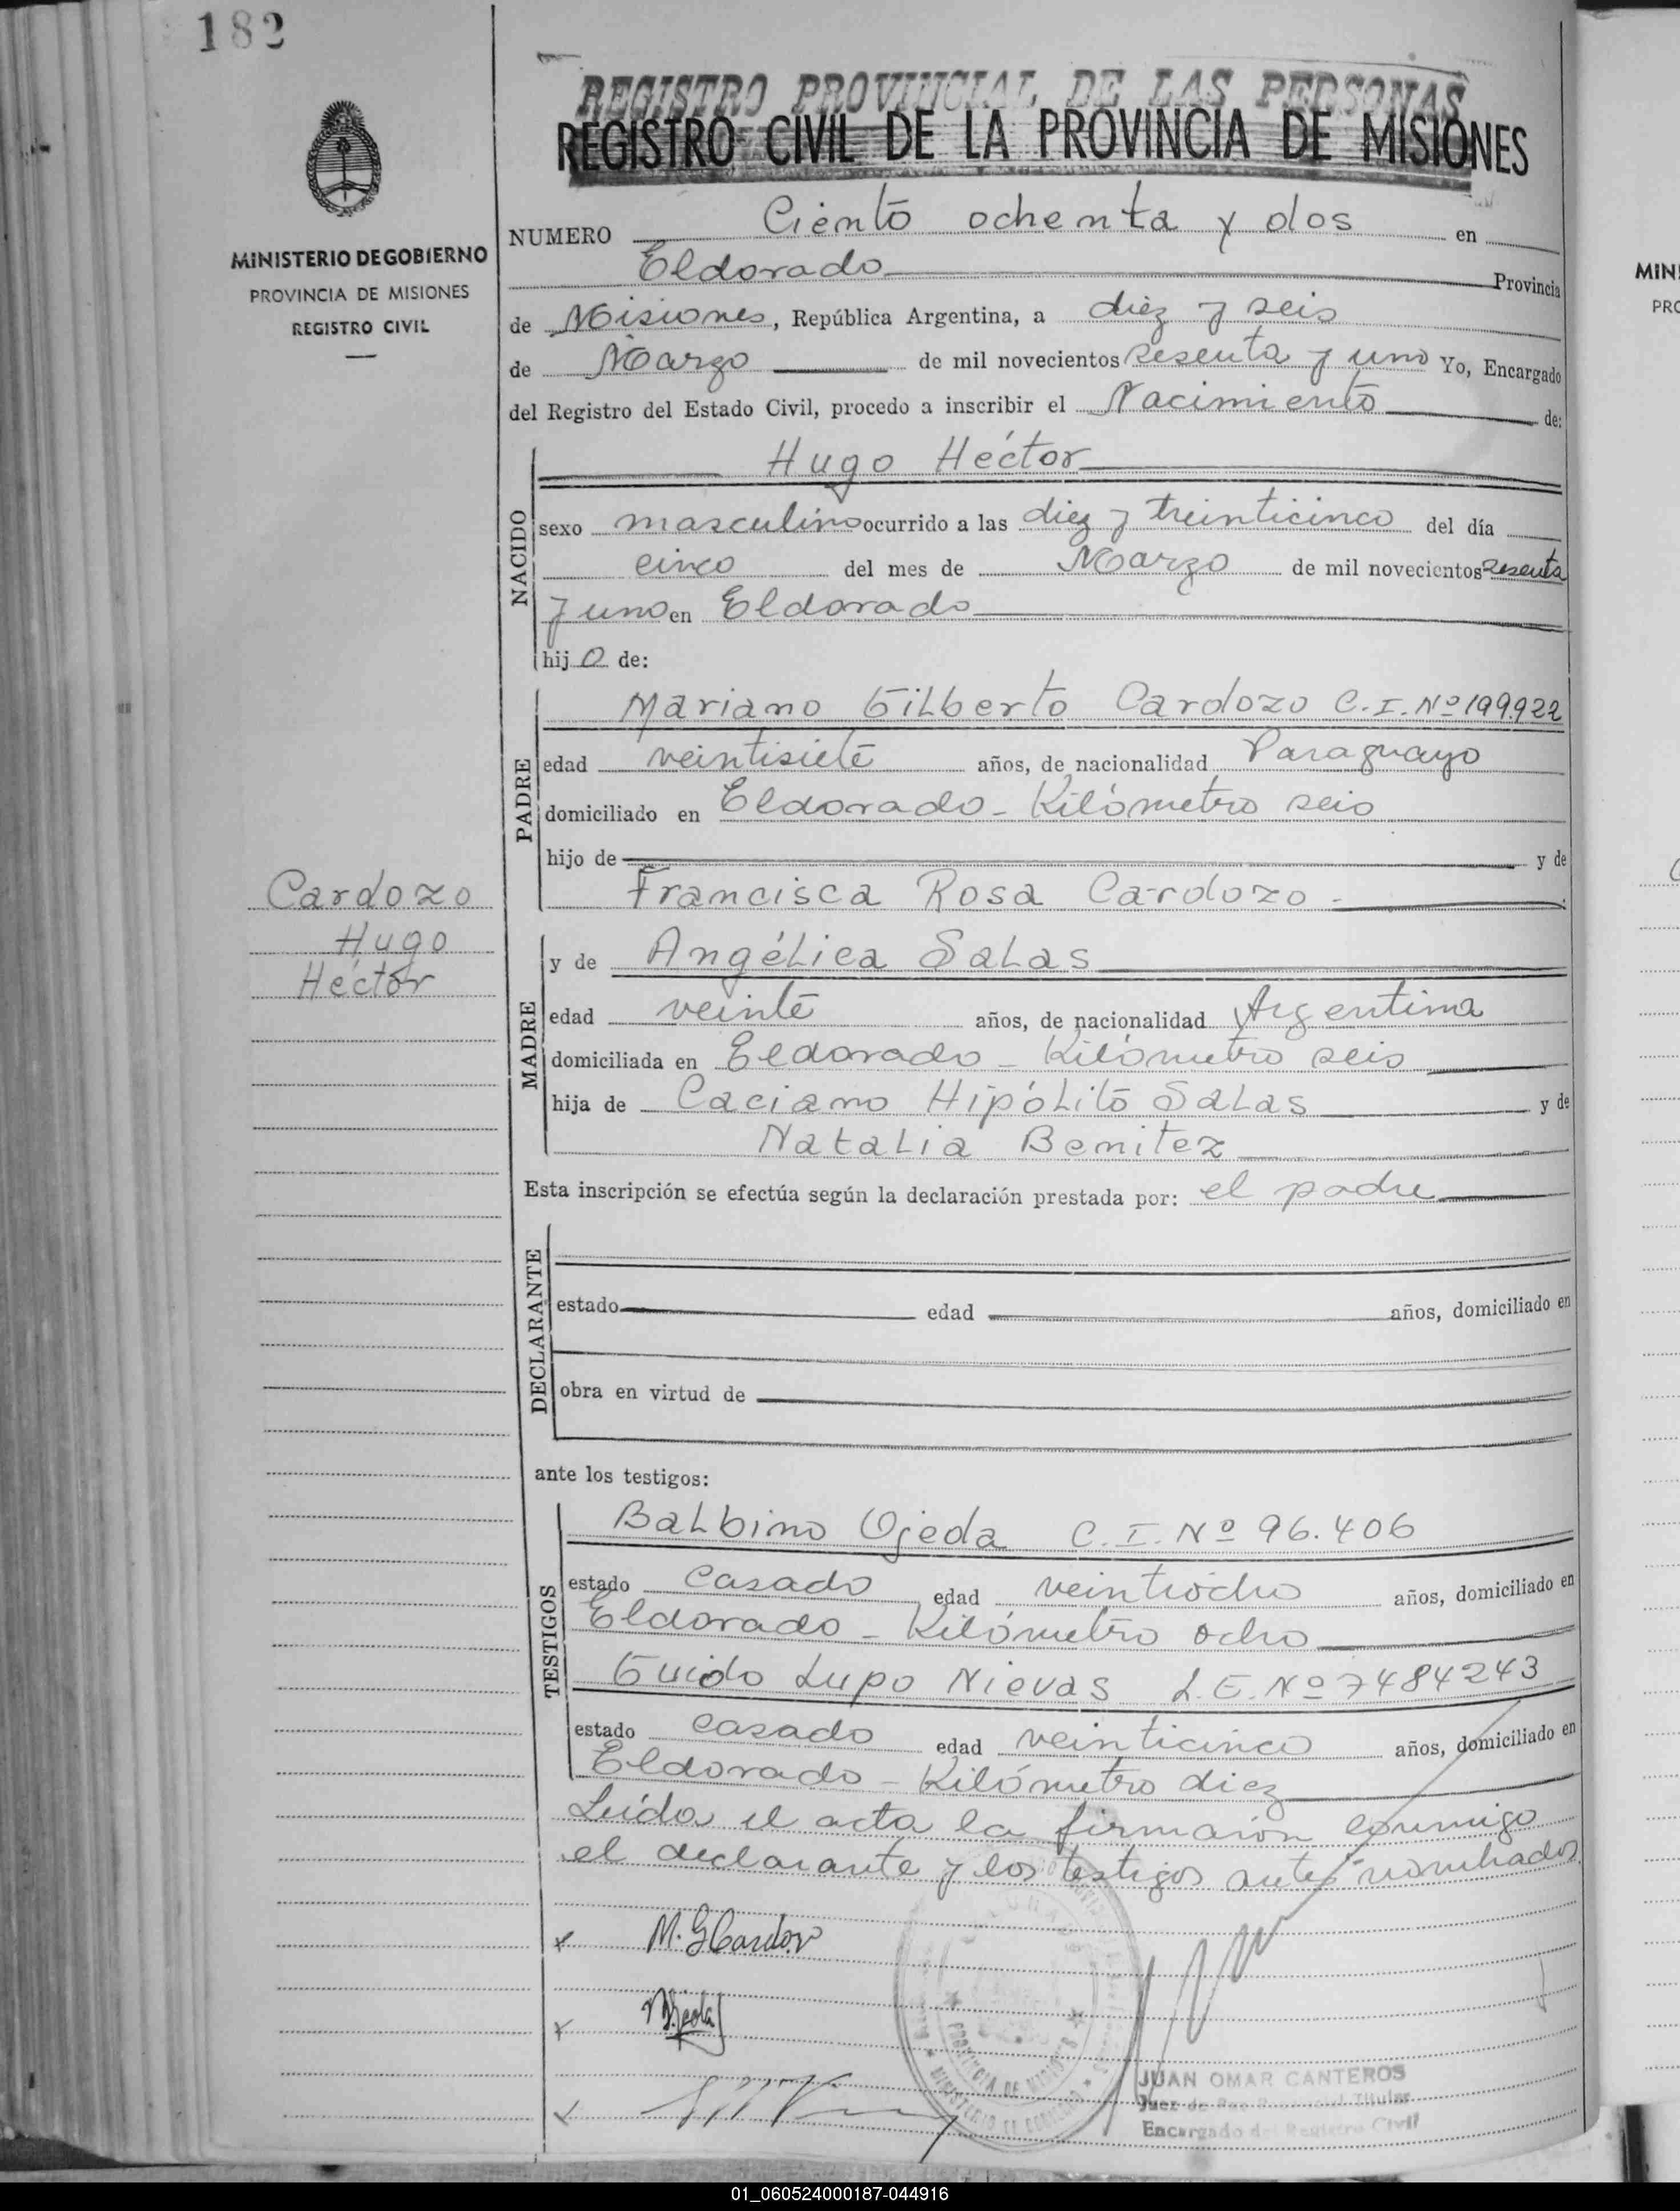 182
MINISTERIO DE GOBIERNO
PROVINCIA DE MISIONES
REGISTRO CIVIL
Cardozo
Hugo
Héctor
REGISTRO PROVINCIAL DE LAS PERSONAS
REGISTRO CIVIL DE LA PROVINCIA DE MISIONES
NUMERO Ciento ochenta y dos en
Eldorado Provincia
de Misiones, República Argentina, a diez y seis
de Marzo de mil novecientos sesenta y uno Yo, Encargado
del Registro del Estado Civil, procedo a inscribir el Nacimiento de:
NACIDO
Hugo Héctor
sexo masculino ocurrido a las diez y treinticinco del día
cinco del mes de Marzo de mil novecientos sesenta
y uno en Eldorado
hijo de:
PADRE
Mariano Gilberto Cardozo C.I. Nº 199.922
edad veintisiete años, de nacionalidad Paraguayo
domiciliado en Eldorado - Kilómetro seis
hijo de y de
Francisca Rosa Cardozo -
MADRE
y de Angélica Salas
edad veinte años, de nacionalidad Argentina
domiciliada en Eldorado - Kilómetro seis
hija de Caciano Hipólito Salas y de
Natalia Benitez
Esta inscripción se efectúa según la declaración prestada por: el padre
DECLARANTE
estado edad años, domiciliado en
obra en virtud de
ante los testigos:
TESTIGOS
Balbino Ojeda C.I. Nº 96.406
estado casado edad veintiocho años, domiciliado en
Eldorado - Kilómetro ocho
Guido Lupo Nievas L.E. Nº 7484243
estado casado edad veinticinco años, domiciliado en
Eldorado - Kilómetro diez
Leída el acta la firmaron conmigo
el declarante y los testigos antes nombrados
M. G Cardozo
PROVINCIA DE MISIONES
MINISTERIO DE GOBIERNO
JUAN OMAR CANTEROS
Juez de Paz Titular
Encargado del Registro Civil
MINI
PRO
01_060524000187-044916